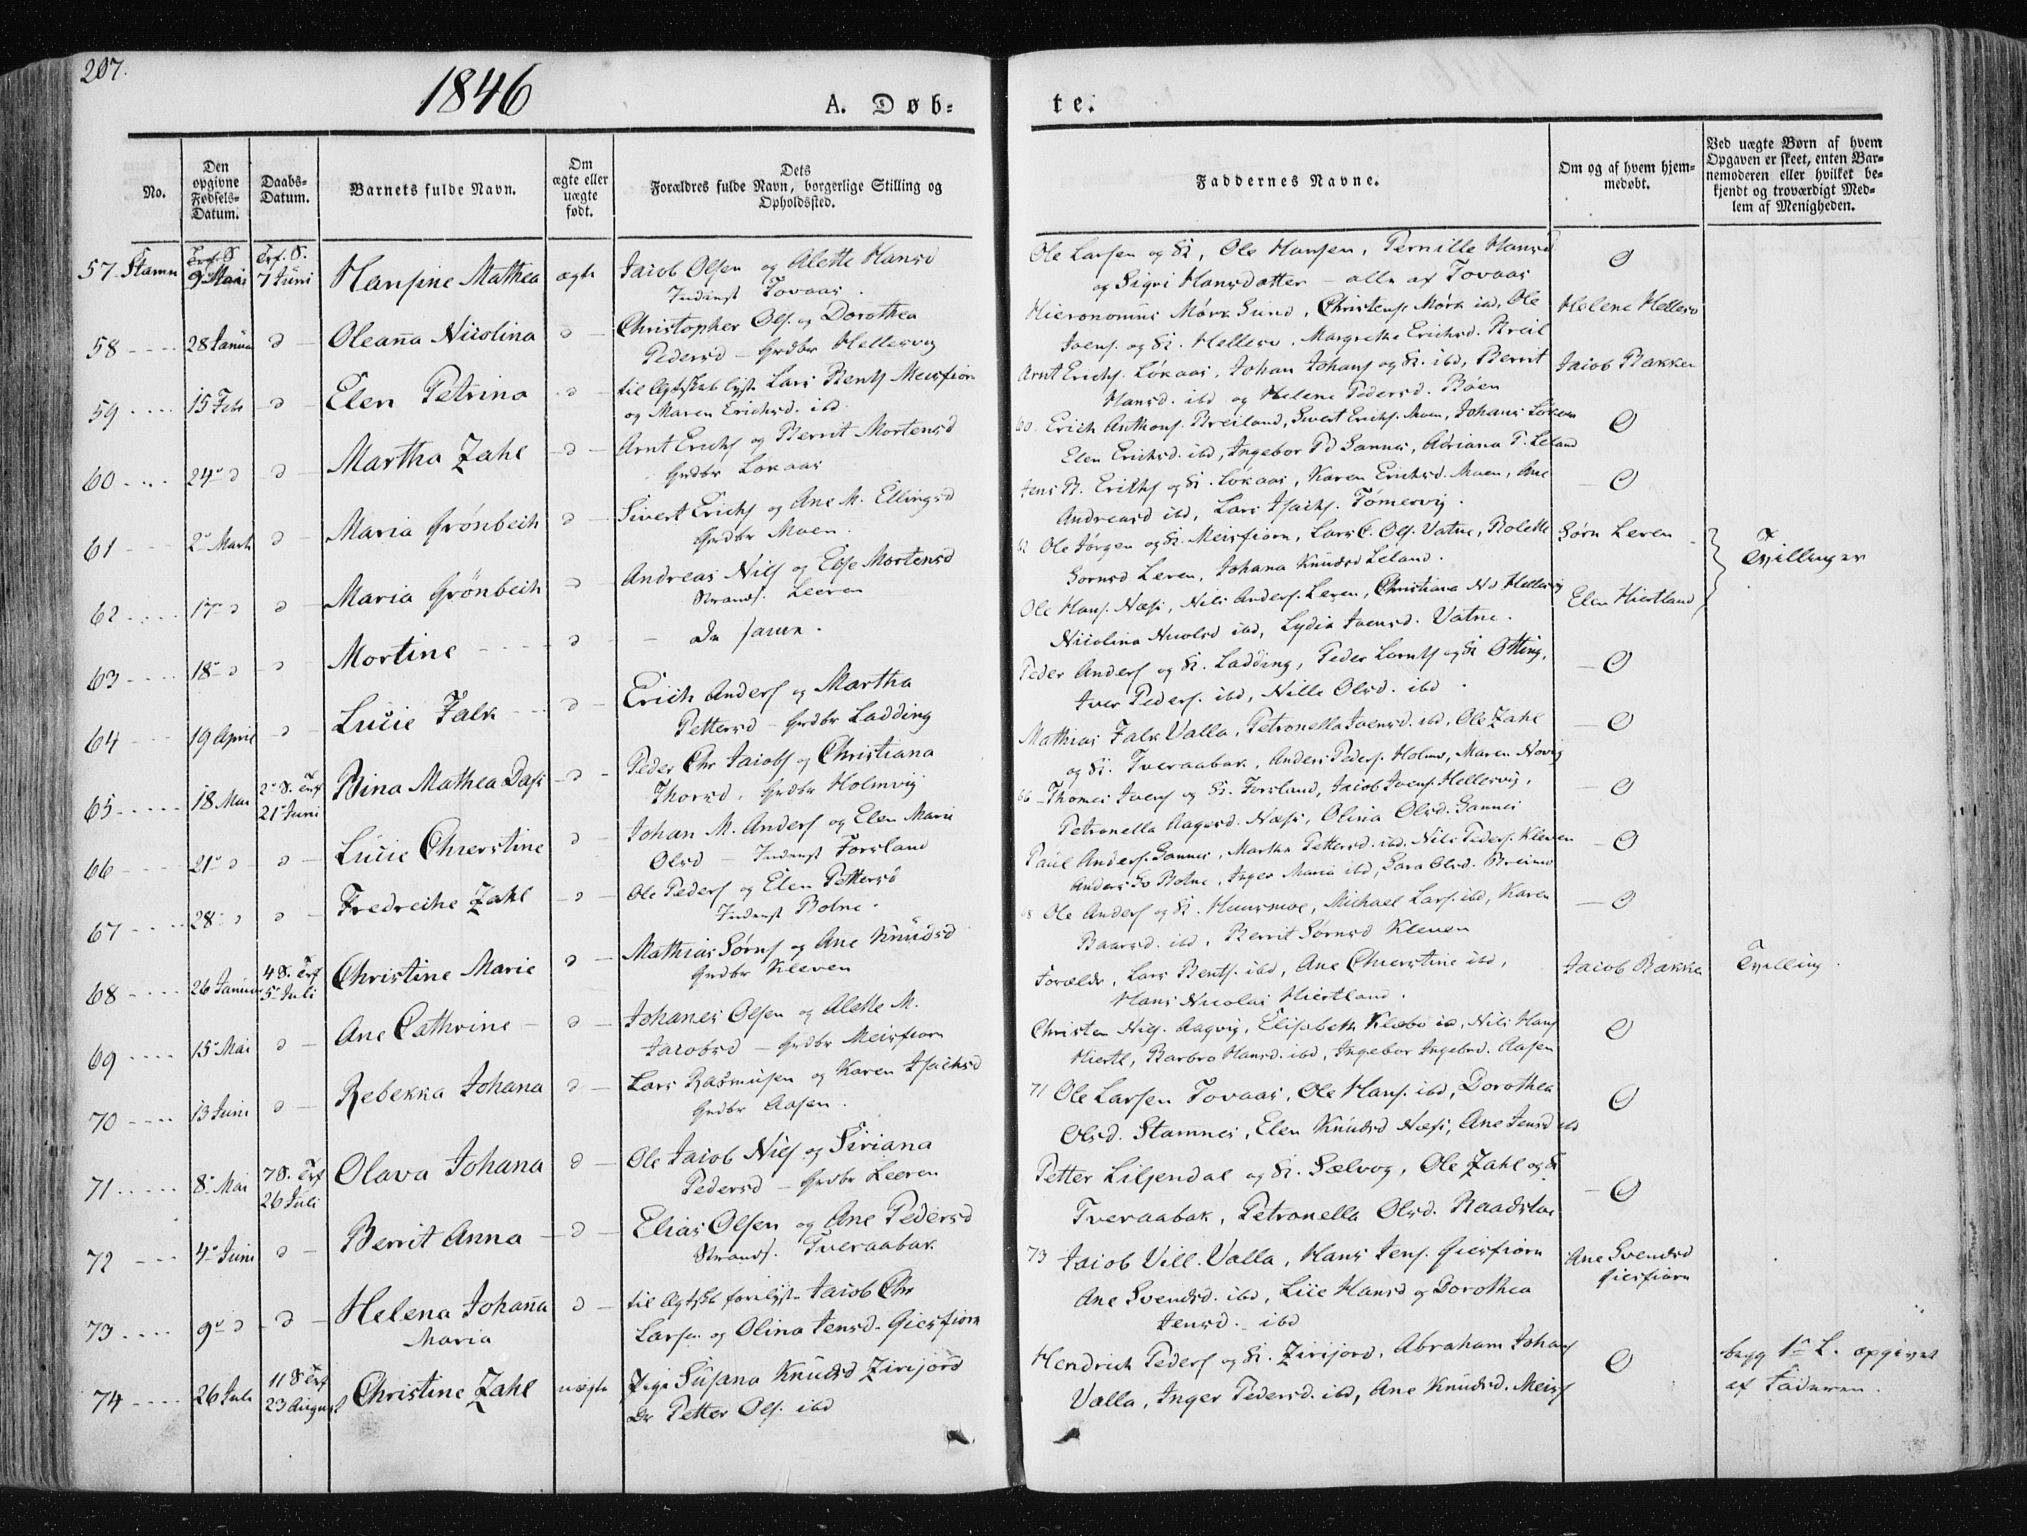 207.
1846
A. Døb-
te.
No.
Den opgivne Fødsels-Datum.
Daabs-Datum.
Barnets fulde Navn.
Om ægte eller uægte født.
Dets Forældres fulde Navn, borgerlige Stilling og Opholdssted.
Faddernes Navne.
Om og af hvem hjem-medøbt.
Ved uægte Børn af hvem Opgaven er skeet, enten Bar-nemoderen eller hvilket be-kjendt og troværdigt Med-lem af Menigheden.
57. Stamn 9 Mai Trf. S. 7 Juni Hansine Mathea ægte Jacob Olsen og Alette Hansd
Inderst Tovaas.
Ole Larsen og K, Ole Hansen, Pernille Hansd
og Sigri Hansdatter - alle af Tovaas
O
58 28 Januar d Oleana Nicolina d Christopher Ols. og Dorothea
Pedersd - Grdbr Hellesvig
Hieronomus Mørk Sund, Christens Mørk ibd, Ole
Ivers. og K. Hellesv, Margrethe Erichsd. Breil
Helene Hellesv
59 15 Feb d Elen Petrina d til Ægteskab lyst Lars Bents Meisfiorn
og Maren Erichsd. ibd
Arnt Erichs. Løkaas, Johan Johans og K. ibd, Berrit
Hansd. ibd og Helene Pedersd. Bøen
Jacob Bakken
60 24 d d Martha Zahl d Arnt Erichs og Berrit Mortensd
Grdbr Løkaas
60. Erich Anthons. Breiland, Sivert Erichs. Moen, Johans Løkaas
Elen Erichsd. ibd, Ingebor Pd Sannes, Adriana P. Leland
O
61 2 Marts d Maria Grønbech d Sivert Erichs og Ane M. Ellingsd
Grdbr Moen
Jens B. Erichs og K. Løkaas, Karen Erichsd. Moen, Ane
Andreasd ibd, Lars Isachs. Tømmervig.
O
62 17 d d Maria Grönbech d Andreas Niels og Else Mortensd
Strands. Leeren
62 Ole Jørgen og K. Meisfiorn, Lars C. Ols. Vatne, Rolette
Sornsd Leren, Johana Knudsd Leland.
Sørn Leren
Tvillinger
63 18 d d Mortine d De samme.
Ole Hans. Næss, Nils Anders. Leren, Christiana Nd Hellesvig
Nicolina Nicolsd ibd, Lydia Iversd. Vatne.
Elen Hiertland
64 19 April d Lucie Falk d Erich Anders og Martha
Pettersd - Grdbr Ladding
Peder Anders og K. Ladding, Peder Larents og K Otting,
Iver Peders. ibd, Nille Olsd. ibd.
O
65 18 Mai 2 S. Trf 21 Juni Bina Mathea Dass d Peder Chr Jacobs og Christiana
Thorsd, Grdbr Holmvig
Mathias Falk Valla, Petronella Iversd. ibd, Ole Zahl
og K. Tveraabak, Anders Peders. Holmv, Maren Novig
O
66 21 d d Lucie Chierstine d Johan M. Anders og Elen Marie
Olsd - Inderst Forsland
66 Thomes Ivers og K. Forsland, Jacob Ivers. Hellesvig,
Petronella Aagesd. Næss, Olina Olsd. Sannes
O
67 28 d d Fredreche Zahl d Ole Peders og Elen Pettersd
Inderst Botne.
Paul Anders. Sannes, Martha Pettersd. ibd. Nils Peders. Kleven
Anders Botne, Inger Maria ibd, Sara Olsd. Breimo
O
68 26 Januar 4 S. Trf 5 Juli Christine Marie d Mathias Sørns og Ane Knudsd
Grdbr Kleven
68 Ole Anders og K. Huusmoe, Michael Lars. ibd, Karen
Baarsd. ibd, Berrit Sørnsd Kleven
O
69 15 Mai d Ane Cathrine d Johanes Olsen og Alette M.
Jacobsd - Grdbr Meisfiorn
Forældr, Lars Bents. ibd, Ane Chierstine ibd,
Hans Nicolai Hiertland.
Jacob Bakke
Tvilling.
70 13 Juni d Rebekka Johana d Lars Rasmusen og Karen Isachsd
Grdbr Aasen.
Christen Niels. Aagvig, Elisabeth Klæbo ibd, Nils Hans
Hiertl, Barbro Hansd. ibd, Ingebor Ingebrd. Aasen
O
71 8 Mai 7 S. Trf 26 Juli Olava Johana d Ole Jacob Niels og Siriana
Pedersd - Grdbr Leeren
71 Ole Larsen Tovaas, Ole Hans. ibd, Dorothea
Olsd. Stamnes, Elen Knudsd Næss, Ane Jensd ibd
O
72 4 Juni d Berrit Anna d Elias Olsen og Ane Pedersd
Strands. Tveraabak
Petter Liljendal og K. Sælvog, Ole Zahl og K
Tveraabak, Petronella Olsd. Haadstae
O
73 9 d d Helena Johana Maria d til Ægtskb forelyst Jacob Chr
Larsen og Olina Jensd. Giesfiorn
73 Jacob Vill. Valla, Hans Jens. Giesfiorn
Ane Svendsd. ibd, Lüe Hansd og Dorothea
Jensd. ibd
Ane Svendsd Giesfiorn
74 26 Juli 11 S Trf 23 August Christine Zahl uægte Pige Susana Knudsd Zirijord
Dr Petter Ols. ibd
Hendrich Peders og K. Zirijord, Abraham Johans
Valla, Inger Pedersd. ibd, Ane Knudsd. Meisf
O
begg 1 L. opgivet
af Faderen.